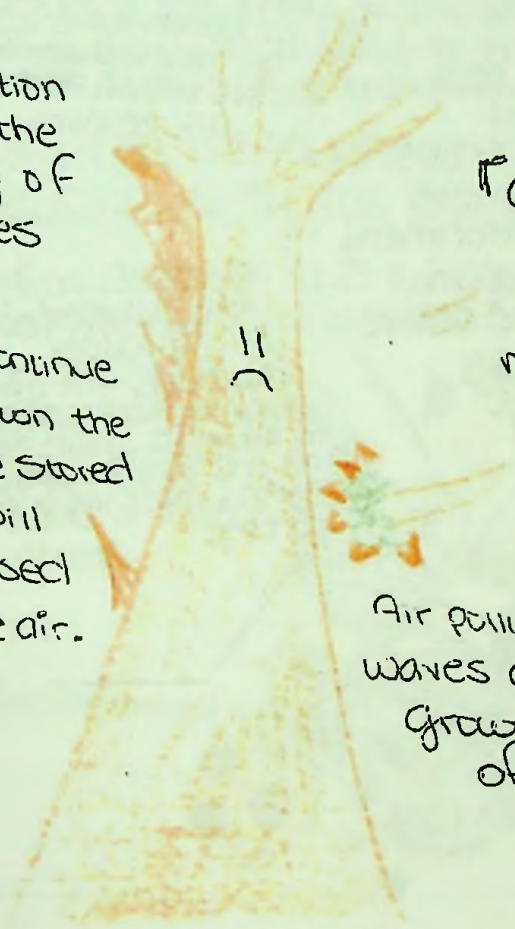 tion
the
of
es
ntinue
on the
e stored
will
sed
e air.
Air pollu
waves
Grow
of